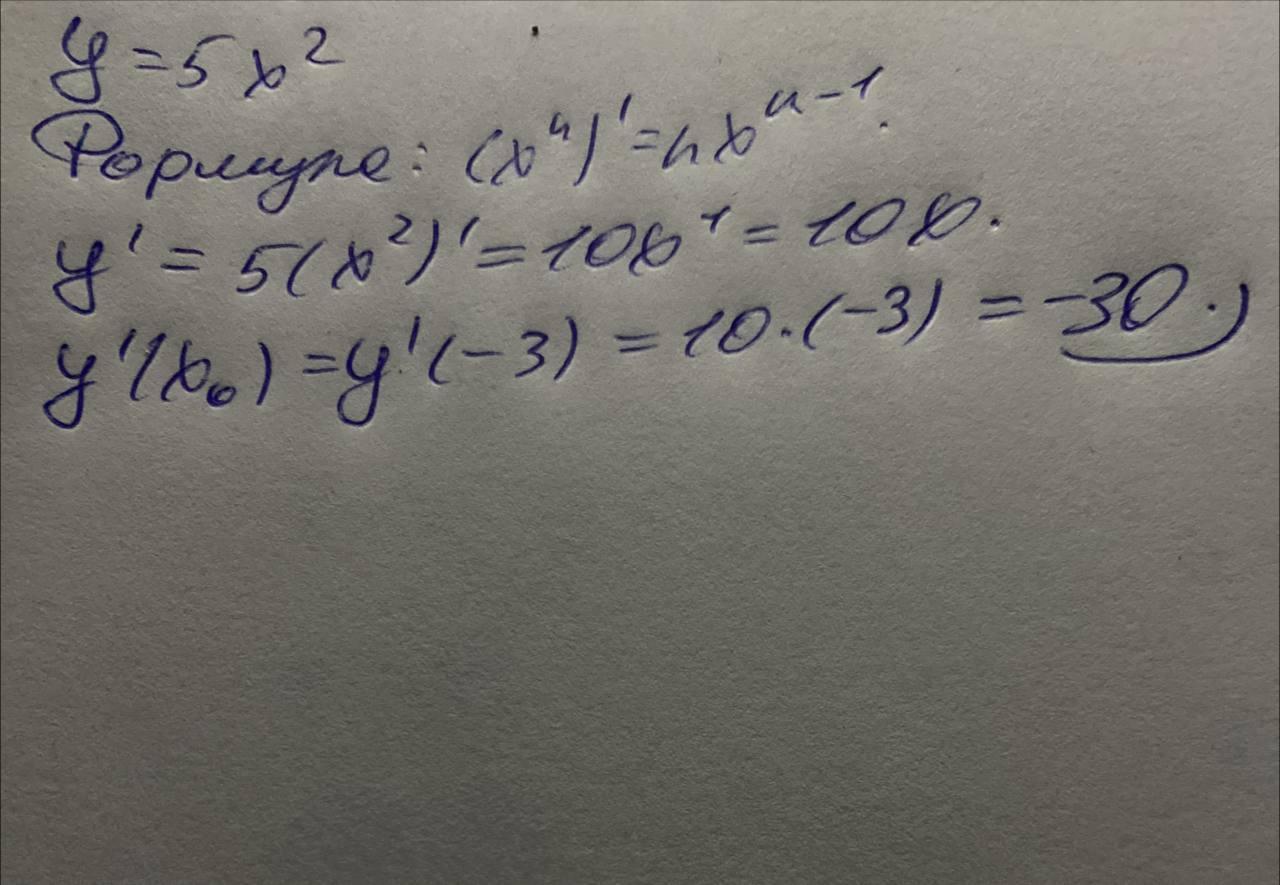 y = 5x²
Формула: (xⁿ)' = nxⁿ⁻¹.
y' = 5(x²)' = 10x¹ = 10x.
y'(x₀) = y'(-3) = 10·(-3) = -30.)